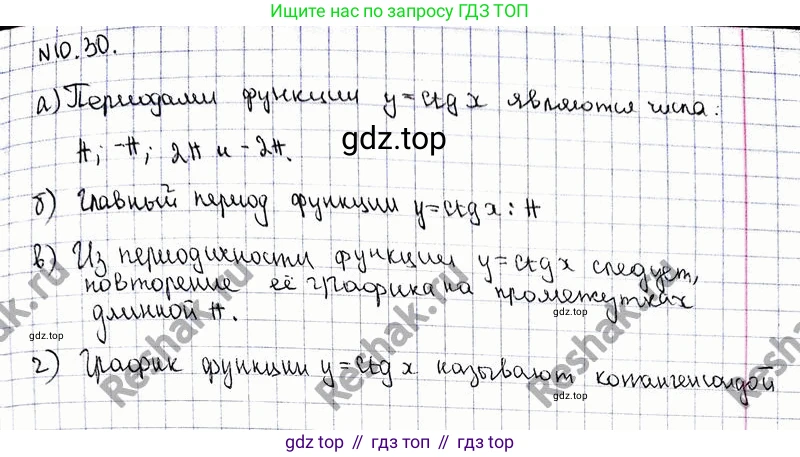 Ищите нас по запросу ГДЗ ТОП
№10.30.
а) Периодами функции y=ctg x являются числа:
π; -π; 2π и -2π.
gdz.top
б) Главный период функции y=ctg x: π
в) Из периодичности функции y=ctg x следует,
повторение её графика на промежутках
длинной π.
gdz.top
gdz.top
г) График функции y=ctg x называют котангенсоидой
Reshak.ru
Reshak.ru
Reshak.ru
gdz top // гдз топ // gdz.top